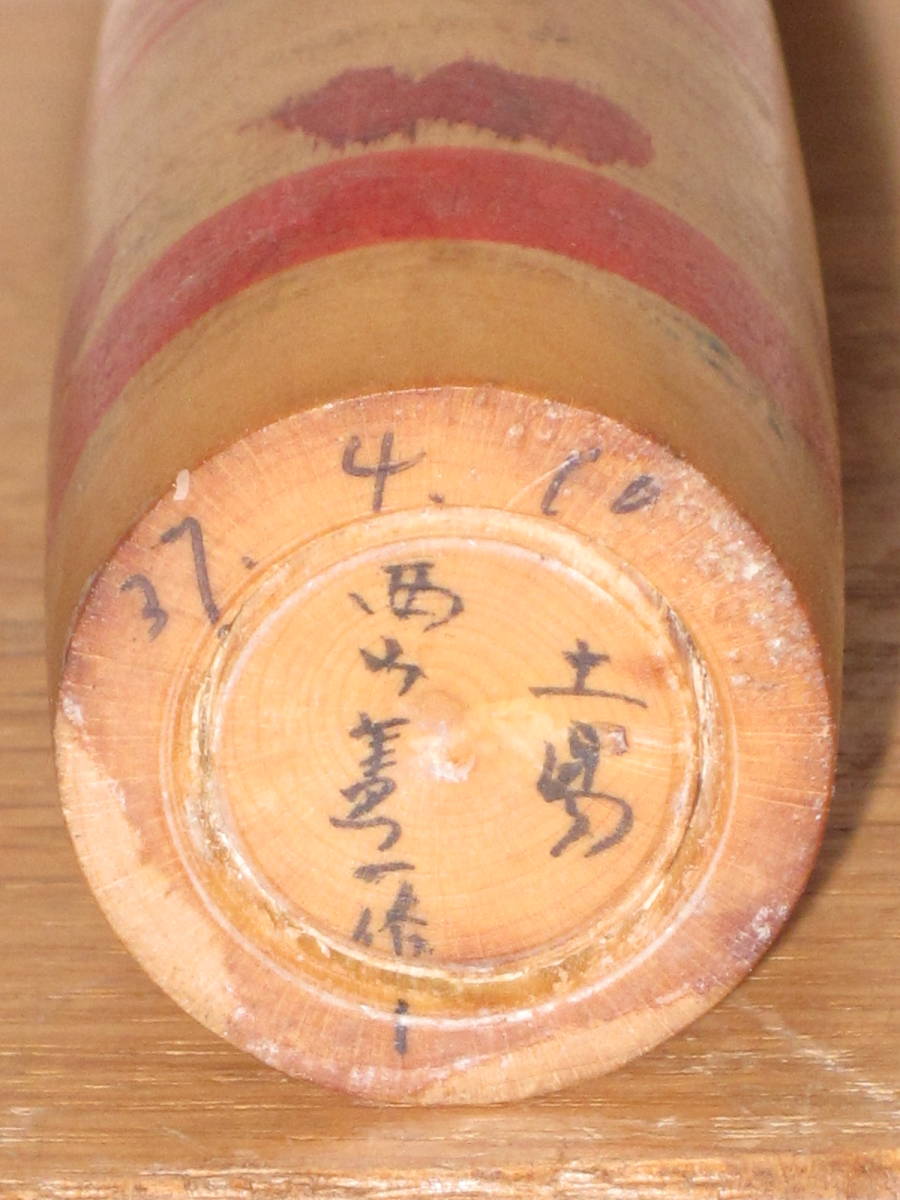 37. 4. 10
土湯
西山憲一作